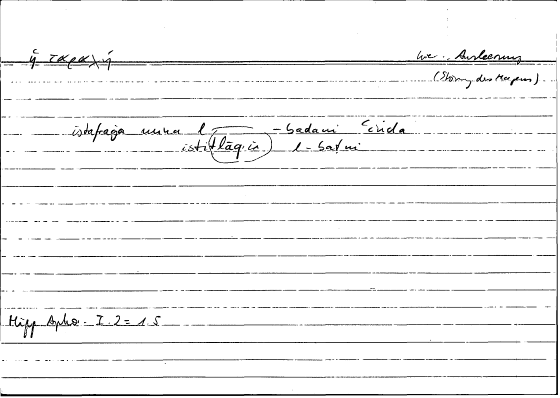 ἡ ταραχή
we. Ausleerung
(Störung des Magens)
istafraġa mina l -badani ʿinda
istiṭlāqi l-baṭni
Hipp Apho. I. 2 = 1.5